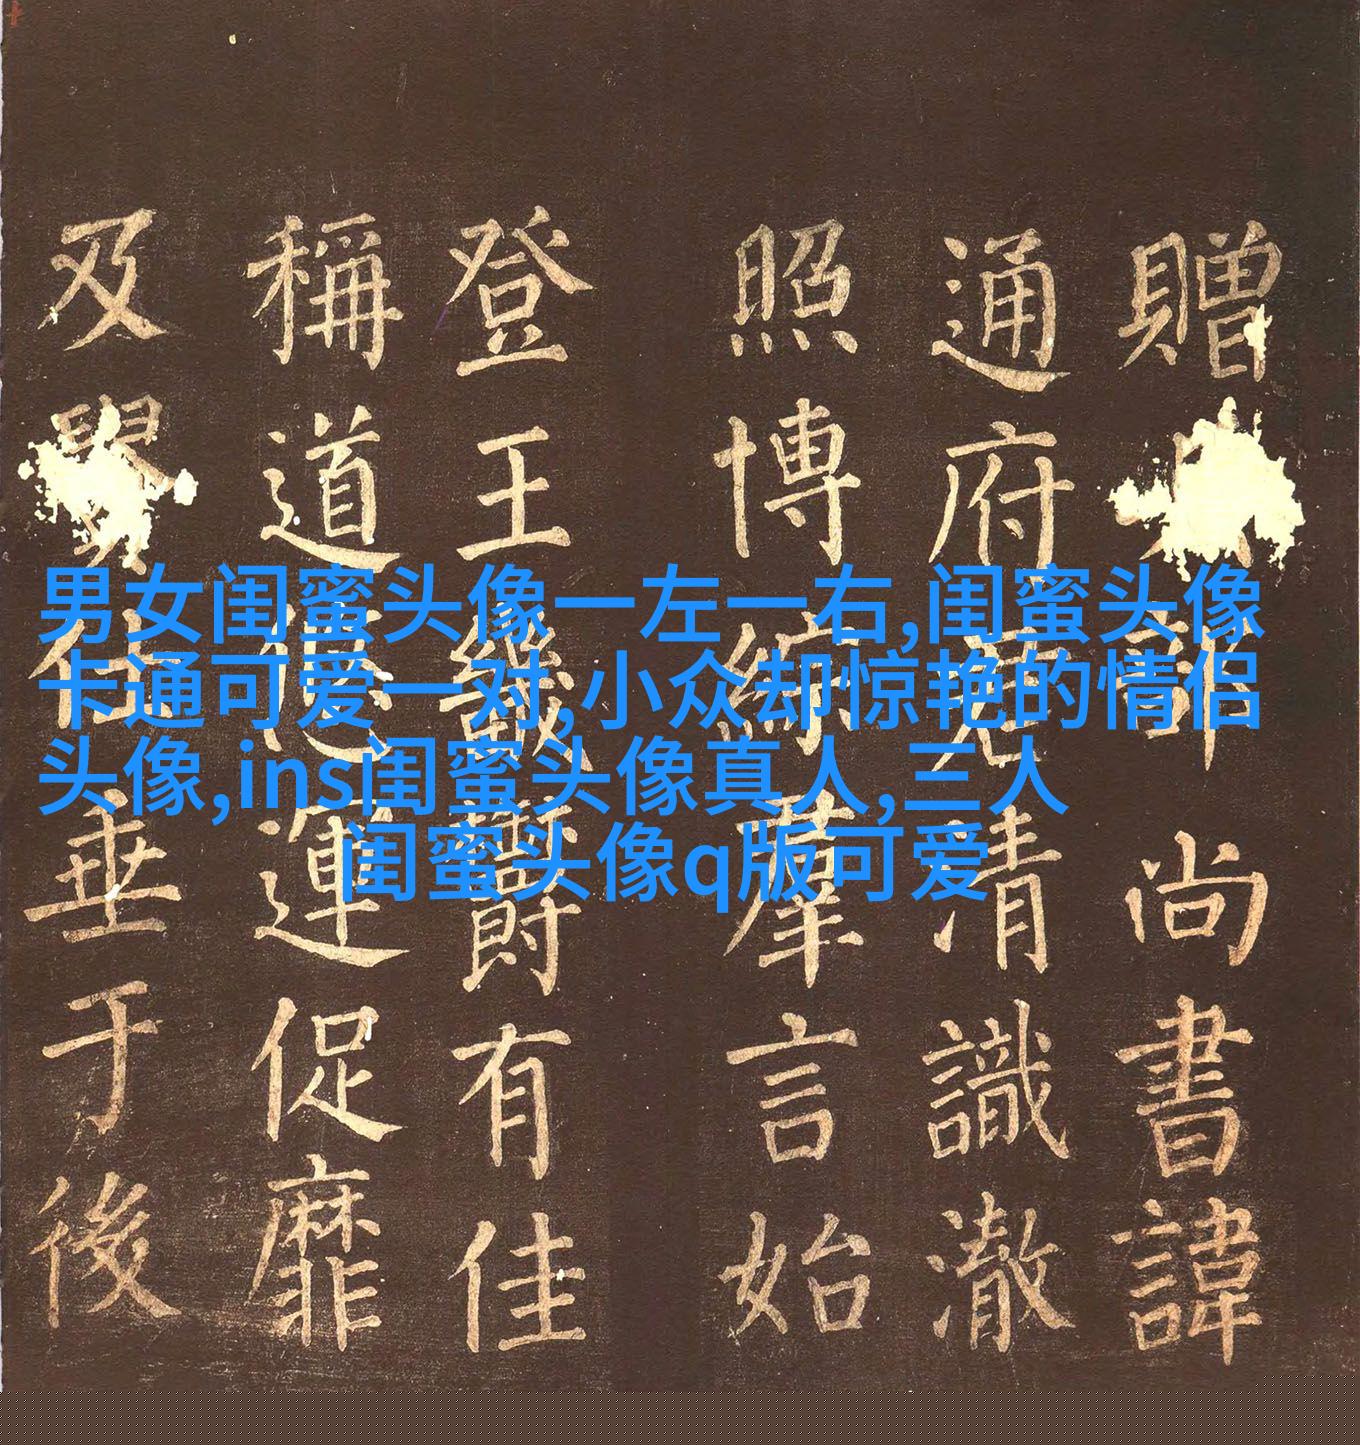 男女闺蜜头像一左一右,闺蜜头像
卡通可爱一对,小众却惊艳的情侣
头像,ins闺蜜头像真人,三人
闺蜜头像q版可爱
贈 訃 尚書諱
通府 清識澈
照博綜羣言始
登王畿爵有佳
稱道 運促靡
及 垂于後